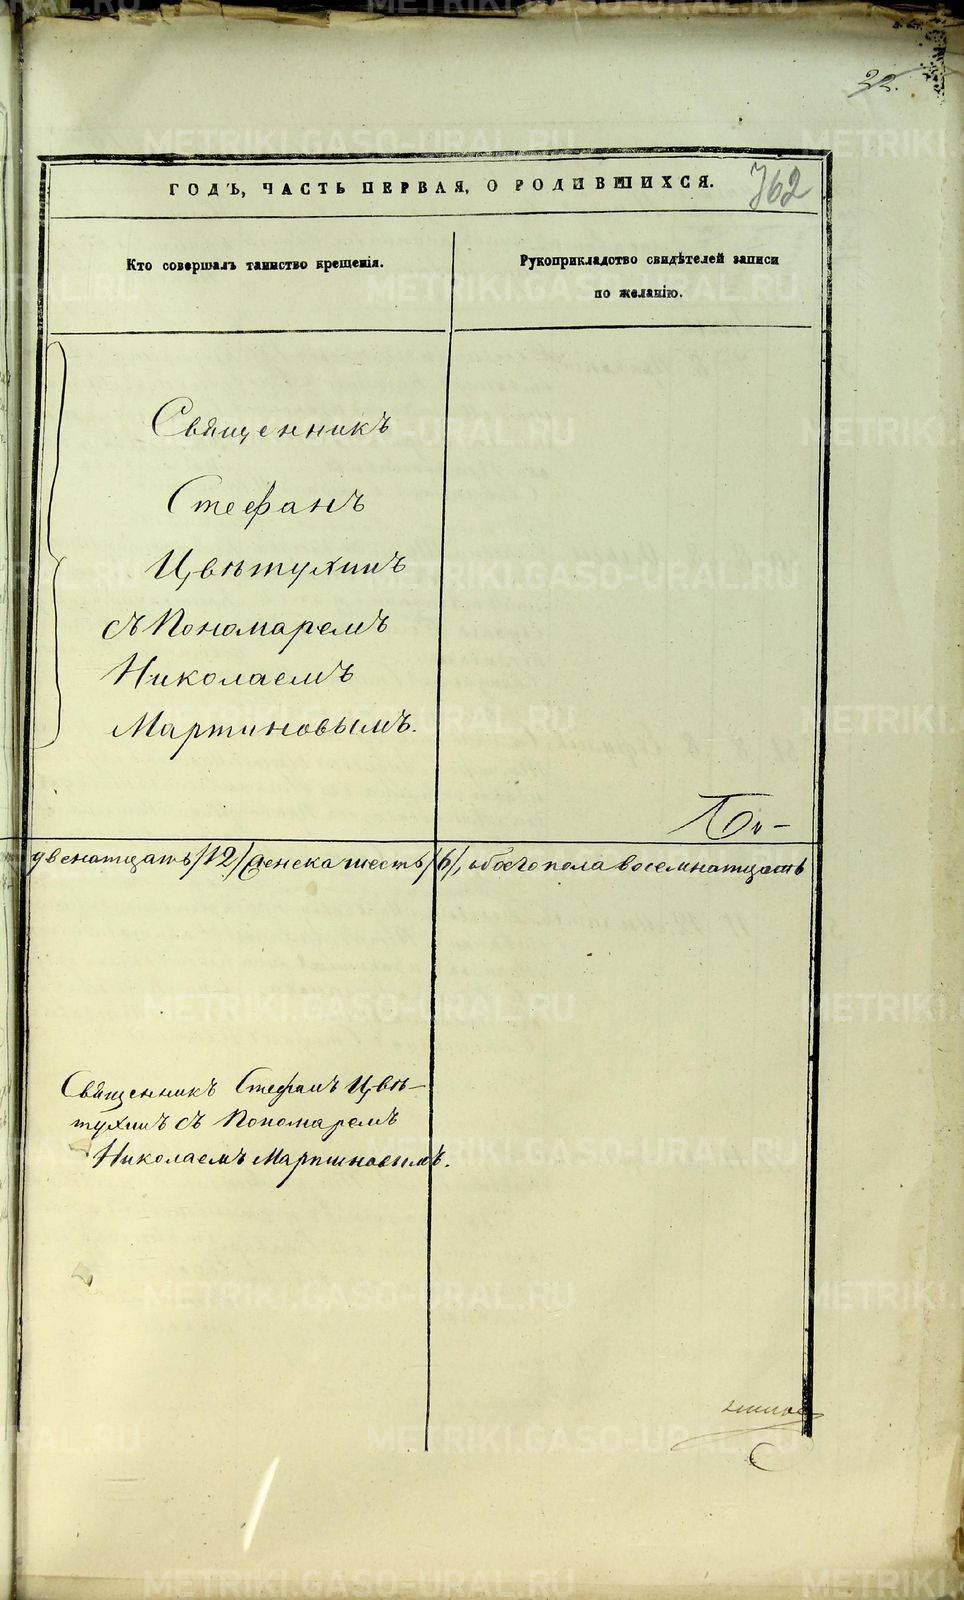 22.
762
ГОДЪ, ЧАСТЬ ПЕРВАЯ, О РОДИВШИХСЯ.
Кто совершалъ таинство крещенія.
Рукоприкладство свидѣтелей записи
по желанію.
Священникъ
Стефанъ
Цвѣтухинъ
съ Пономаремъ
Николаемъ
Мартиновымъ.
двенатцать /12/ женска шесть /6/, обоего пола восемнатцать
Священникъ Стефанъ Цвѣ-
тухинъ съ Пономаремъ
Николаемъ Мартиновымъ.
METRIKI.GASO-URAL.RU